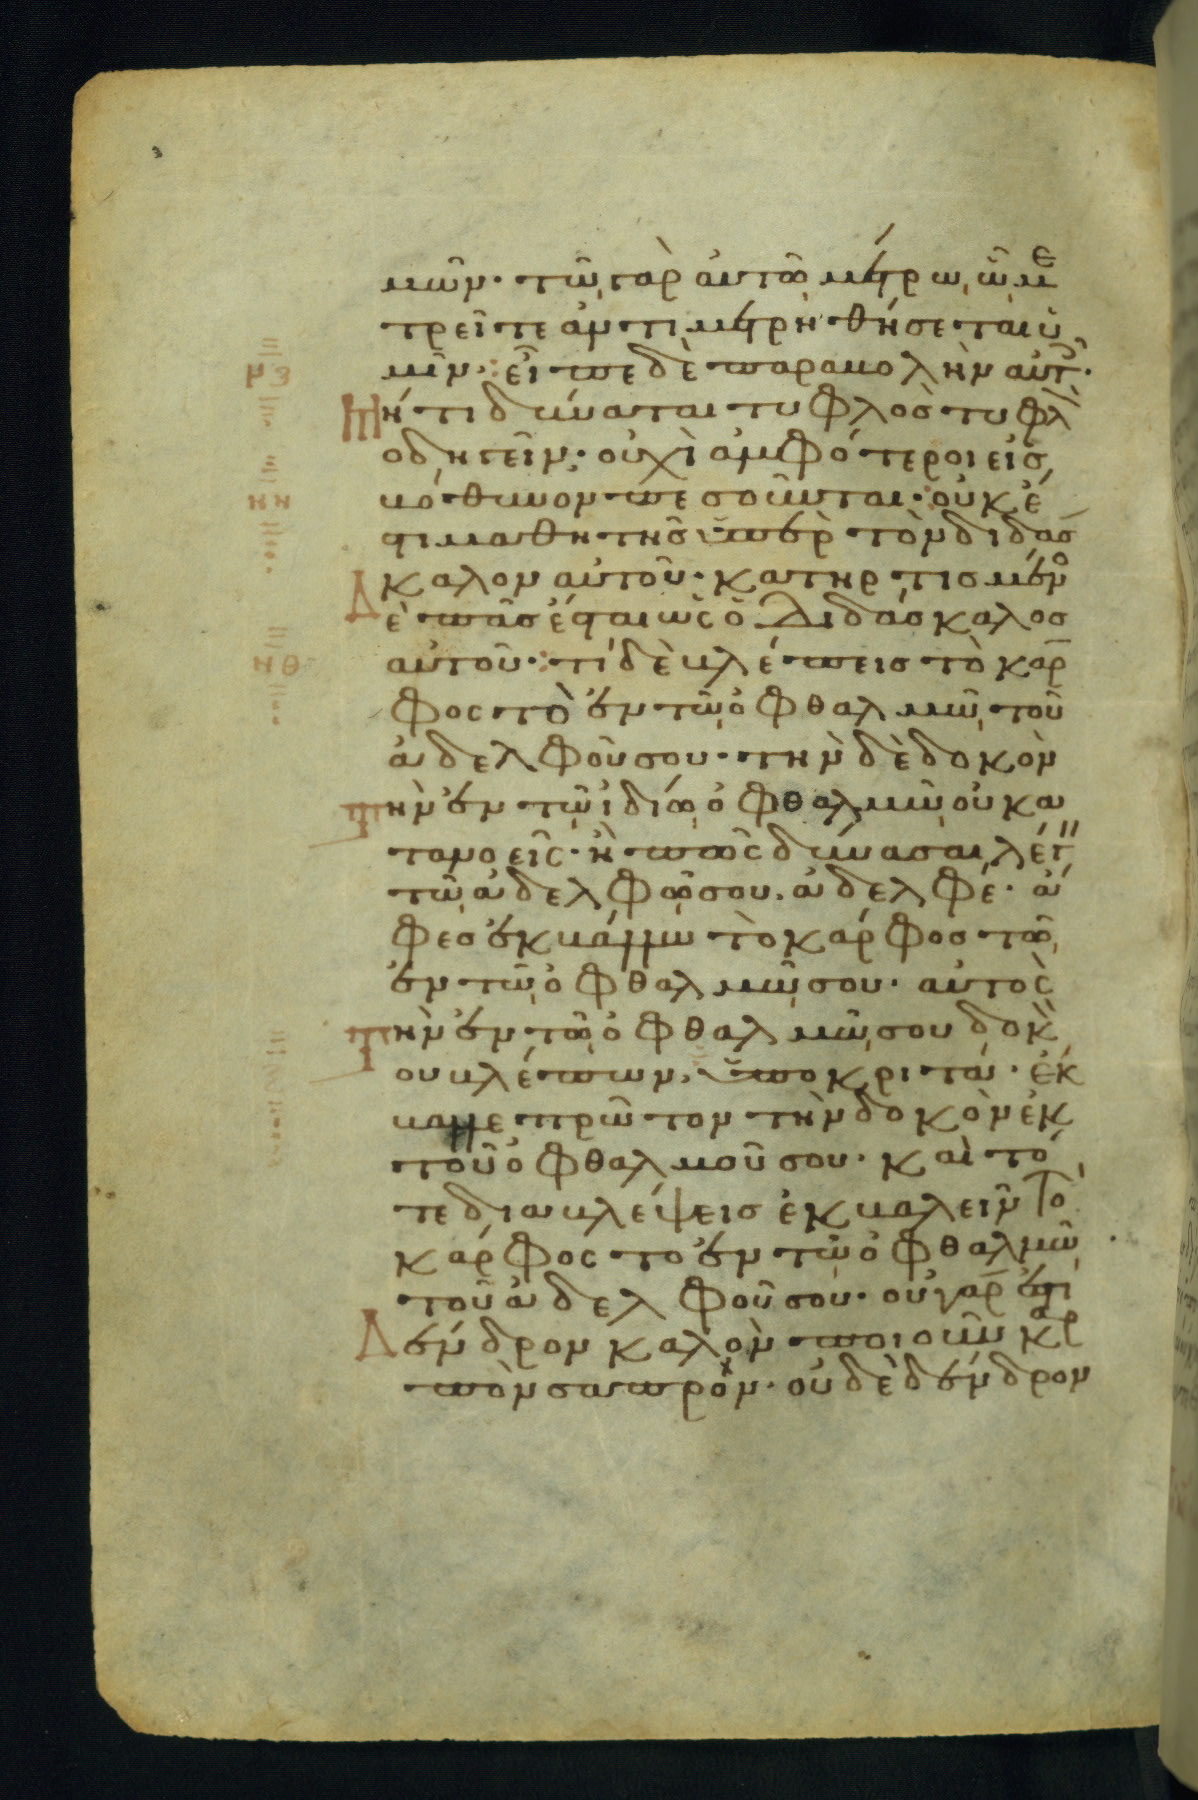 μῶν· τῶ γὰρ ἀυτῶ μέτρω, ὧ με
τρεῖτε ἀντιμετρηθήσεται ὑ
μῖν· εἶπε δὲ παραβολὴν αὐτοῖς·
νζ
Μήτι δύναται τυφλὸσ τυφλὸν
ὁδηγεῖν· οὐχὶ ἀμφότεροι εἰσ
βόθυνον πεσοῦνται· οὐκ ἔ
νη
στι μαθητὴσ ὑπὲρ τὸν διδάσ
καλον αὐτοῦ· κατηρτισμένοσ
Δὲ πᾶσ ἔσται ὡς ὁ διδάσκαλοσ
αὐτοῦ· τί δὲ βλέπεισ τὸ κάρ
νθ
φος τὸ ἐν τῶ ὀφθαλμῶ τοῦ
ἀδελφοῦ σου· τὴν δὲ δοκὸν
Τὴν ἐν τῶ ἰδίω ὀφθαλμῶ οὐ κα
τανοεῖς· ἢ πῶς δύνασαι λέγειν
τῶ ἀδελφῶ σου, ἀδελφέ· ἄ
φεσ ἐκβάλλω τὸ κάρφοσ τὸ
ἐν τῶ ὀφθαλμῶ σου· αὐτὸς
Τὴν ἐν τῶ ὀφθαλμῶ σου δοκὸν
ου βλέπων, ὑποκριτά· ἔκ
βαλλε πρῶτον τὴν δοκὸν ἐκ
τοῦ ὀφθαλμοῦ σου· καὶ τό
τε διαβλέψεισ ἐκβαλεῖν τὸ
κάρφος το ἐν τῶ ὀφθαλμῶ
τοῦ ἀδελφοῦ σου· οὐ γάρ ἐστι
Δένδρον καλὸν ποιοῦν καρ
πὸν σαπρόν· οὐδὲ δένδρον